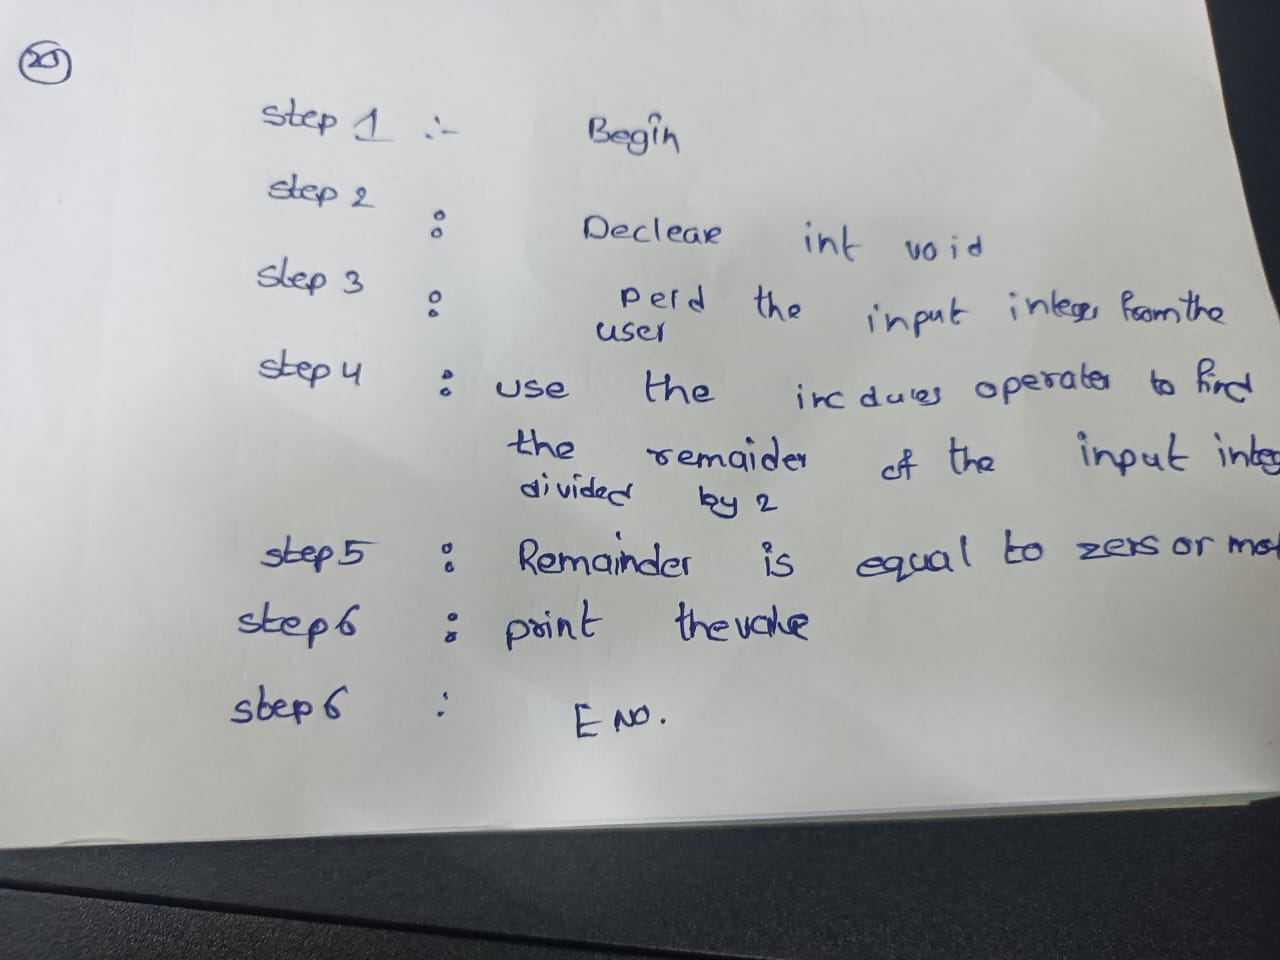 20
step 1 :- Begin
step 2 : Declear int void
step 3 : perd the input integer from the
user
step 4 : use the operater to find
the remaider of the input integ
divided by 2
step 5 : Remainder is equal to zers or not
step 6 : print the value
step 6 : END.